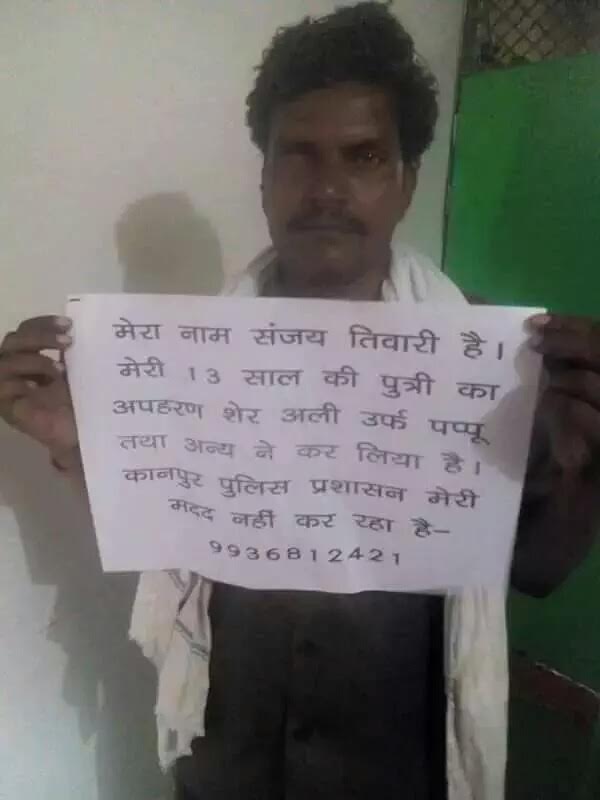 मेरा नाम संजय तिवारी है।
मेरी 13 साल की पुत्री का
अपहरण शेर अली उर्फ पप्पू
तथा अन्य ने कर लिया है।
कानपुर पुलिस प्रशासन मेरी
मदद नहीं कर रहा है–
9936812421